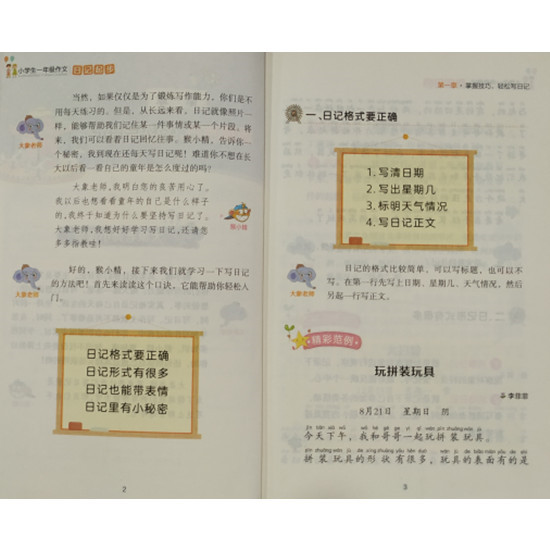 小学生一年级作文 日记起步
当然，如果仅仅是为了锻炼写作能力，你们是不
用每天练习的。但是，从长远来看，日记就像照片一
样，能够帮助我们记住某一件事情或某一个片段。将
来，我们可以看着日记回忆往事。猴小精，告诉你一
个秘密，我到现在还每天写日记呢！难道你不想在长
大以后看一看自己的童年是怎么度过的吗？
大象老师
大象老师，我明白您的良苦用心了。
我以后也想看看童年的自己是什么样子
的，我终于知道为什么要坚持写日记了。
大象老师，我想好好学习写日记，还请您
多多指教哇！
猴小精
好的，猴小精，接下来我们就学习一下写日记
的方法吧！首先来读读这个口诀，它能帮助你轻松入
门。
大象老师
日记格式要正确
日记形式有很多
日记也能带表情
日记里有小秘密
2
第一章·掌握技巧，轻松写日记
一、日记格式要正确
1.写清日期
2.写出星期几
3.标明天气情况
4.写日记正文
日记的格式比较简单，可以写标题，也可以不
写，在第一行先写上日期、星期几、天气情况，然后
另起一行写正文。
大象老师
精彩范例
玩拼装玩具
8月21日 星期日 阴
今天下午，我和哥哥一起玩拼装玩具。
拼装玩具的形状有很多，玩具的表面有的是
3